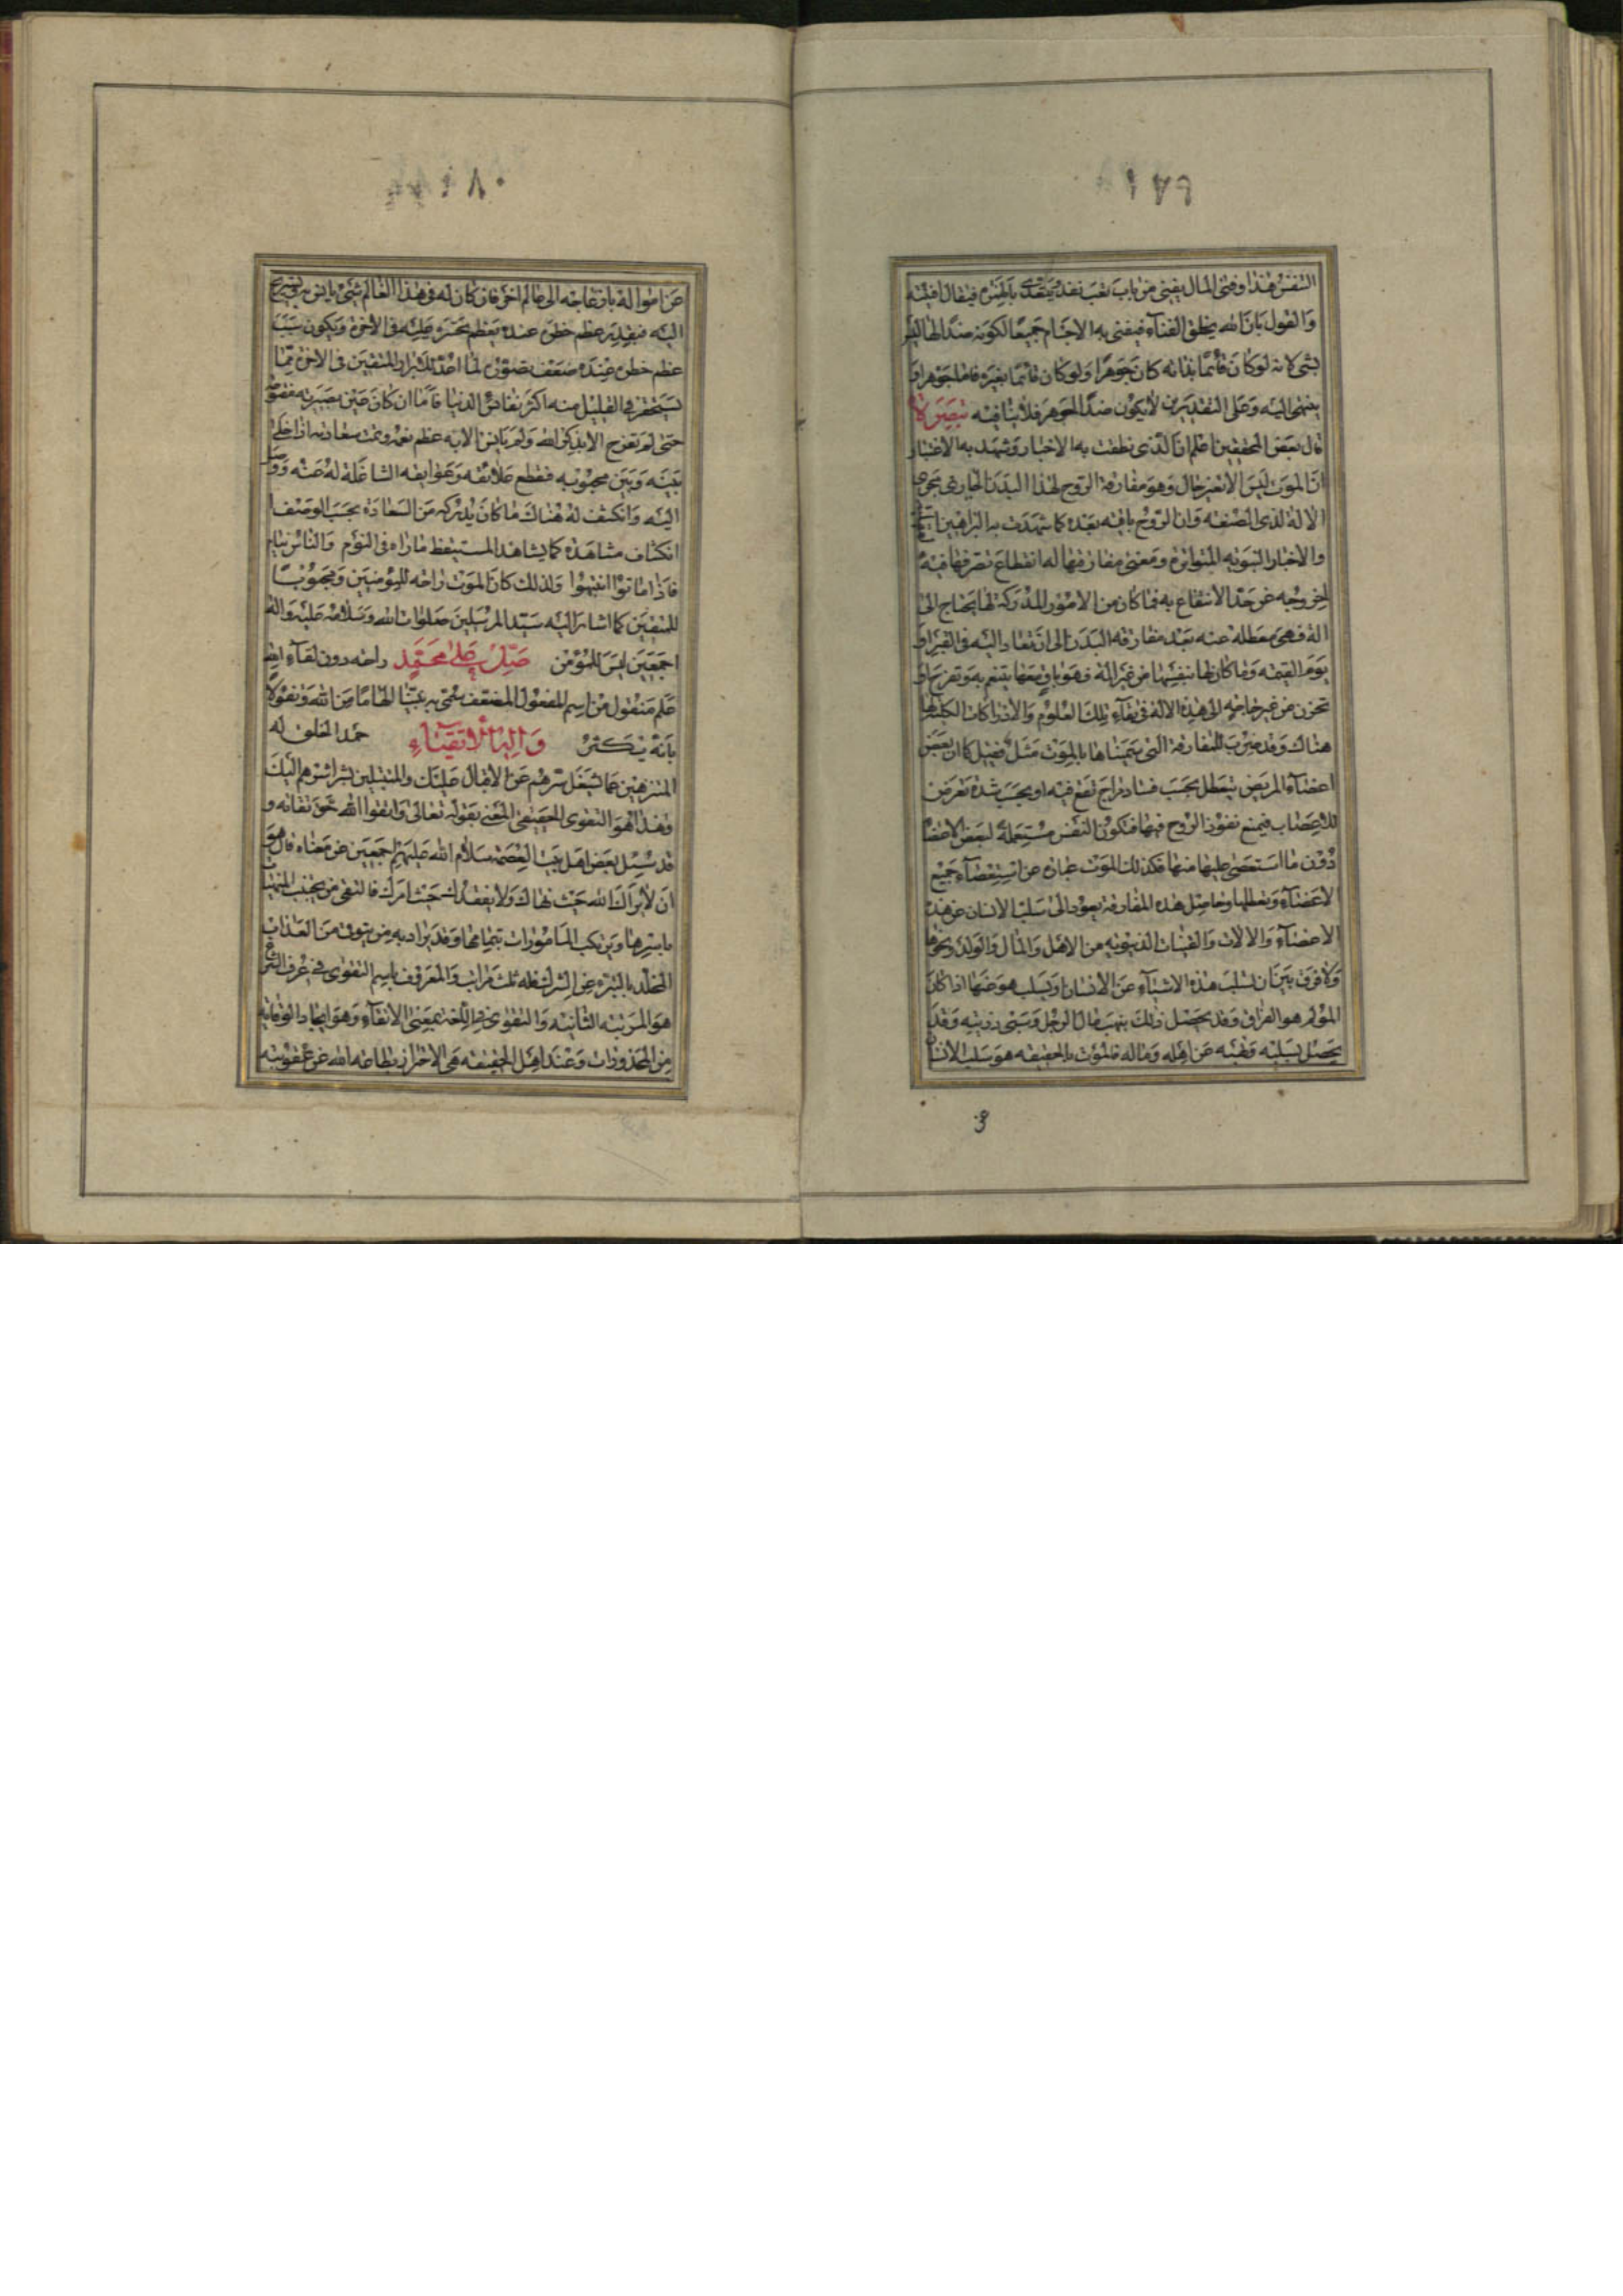 النفس هذا وفنى المال يفنى من باب تعب نفد ويتعدى بالهمزه فيقال افنيته
والقول بان الله يخلق الفناء فيفنى به الاجسام جميعا لكونه ضدا لها ليس
بشئ لانه لو كان قائما بذاته كان جوهرا ولو كان قائما بغيره فاما جوهر او
ينتهى اليه وعلى التقديرين لا يكون ضد الجوهر فلا ينافيه تبصرة
قال بعض المحققين اعلم ان الذى نطقت به الاخبار وشهد به الاعتبار
ان الموت ليس الا تغير حال وهو مفارقة الروح لهذا البدن الجارى مجرى
الالة لذى الصنعه وان الروح باقيه بعده كما شهدت به البراهين
والاخبار النبويه المتواتره ومعنى مفارقتها له انقطاع تصرفها فيه
لخروجه عن حد الانتفاع به فما كان من الامور المدركة لها يحتاج الى
الة فهى معطلة عنه بعد مفارقة البدن الى ان تعاد اليه فى القبر او
يوم القيمه وما كان لها بنفسها من غير الة فهو باق معها يتنعم به وتفرح او
تحزن من غير حاجه الى هذه الالة فى بقاء تلك العلوم والادراكات الكلية لها
هناك وقد ضرب للمفارقة التى سميناها بالموت مثل فقيل كما ان بعض
اعضاء المريض يتعطل بحسب فساد مزاج تقع فيه او بحسب شدة تعرض
للاعصاب فيمنع نفوذ الروح فيها فتكون النفس مستعملة لبعض الاعضا
دون ما استعصى عليها منها فكذلك الموت عبارة عن استعصاء جميع
الاعضاء وتعطلها وحاصل هذه المفارقة يعود الى سلب الانسان عن هذه
الاعضاء والالات والقينات الدنيويه من الاهل والمال والولد ونحوها
ولا فرق بين ان تسلب هذه الاشياء عن الانسان او يسلب هو عنها اذا كان
المؤلم هو الفراق وقد يحصل ذلك بنهب مال الرجل وسبى ذريته وقد
يحصل بسلبه ونهبه عن اهله وماله فالموت بالحقيقه هو سلب الانسان
عن امواله بازعاجه الى عالم اخر فان كان له فى هذا العالم شئ يانس به ويستريح
اليه فبقدر عظم خطره عنده يعظم تحسره عليه فى الاخرة ويكون سبب
عظم خطره عنده ضعف تصوره لما اعد للابرار والمتقين فى الاخرة مما
يستحقر فى القليل منه اكثر نفائس الدنيا فاما ان كان عين بصيرته مفتوحة
حتى لم تفرح الا بذكر الله ولم يانس الا به عظم نعيمه وتمت سعادته اذا خلى
بينه وبين محبوبه فقطع علائقه وعوايقه الشاغلة له عنه ووصل
اليه وانكشف له هناك ما كان يدركه من السعادة بحسب الوصف
انكشاف مشاهدة كما يشاهد المستيقظ ما راه فى النوم والناس نيام
فاذا ماتوا انتبهوا ولذلك كان الموت راحه للمؤمنين ومحبوبا
للمتقين كما اشار اليه سيد المرسلين صلوات الله وسلامه عليه واله
اجمعين ليس للمؤمن راحه دون لقاء الله صل على محمد
علم منقول من اسم المفعول المضعف سمى به نبينا الهاما من الله وتفؤلا
بانه يكثر حمد الخلق له وآله الاتقياء
المتنزهين عما يشغل سرهم عن الاقبال عليك والمتبتلين بشراشرهم اليك
وهذا هو التقوى الحقيقى المعنى بقوله تعالى واتقوا الله حق تقاته و
قد سئل بعض اهل بيت العصمة سلام الله عليهم اجمعين عن معناه فقال هو
ان لا يراك الله حيث نهاك ولا يفقدك حيث امرك فالمتقى من يجتنب المنهيات
باسرها ويرتكب المامورات بتمامها وقد يراد به من يتوقى من العذاب
المخلد بالتبرء عن الشرك فله ثلث مراتب والمعروف باسم التقوى فى عرف الشرع
هو المرتبه الثانيه والتقوى فى اللغة بمعنى الاتقاء وهو ايجاد الوقايه
من المحذورات وعند اهل الحقيقه هى الاحتراز بطاعه الله عن عقوبته